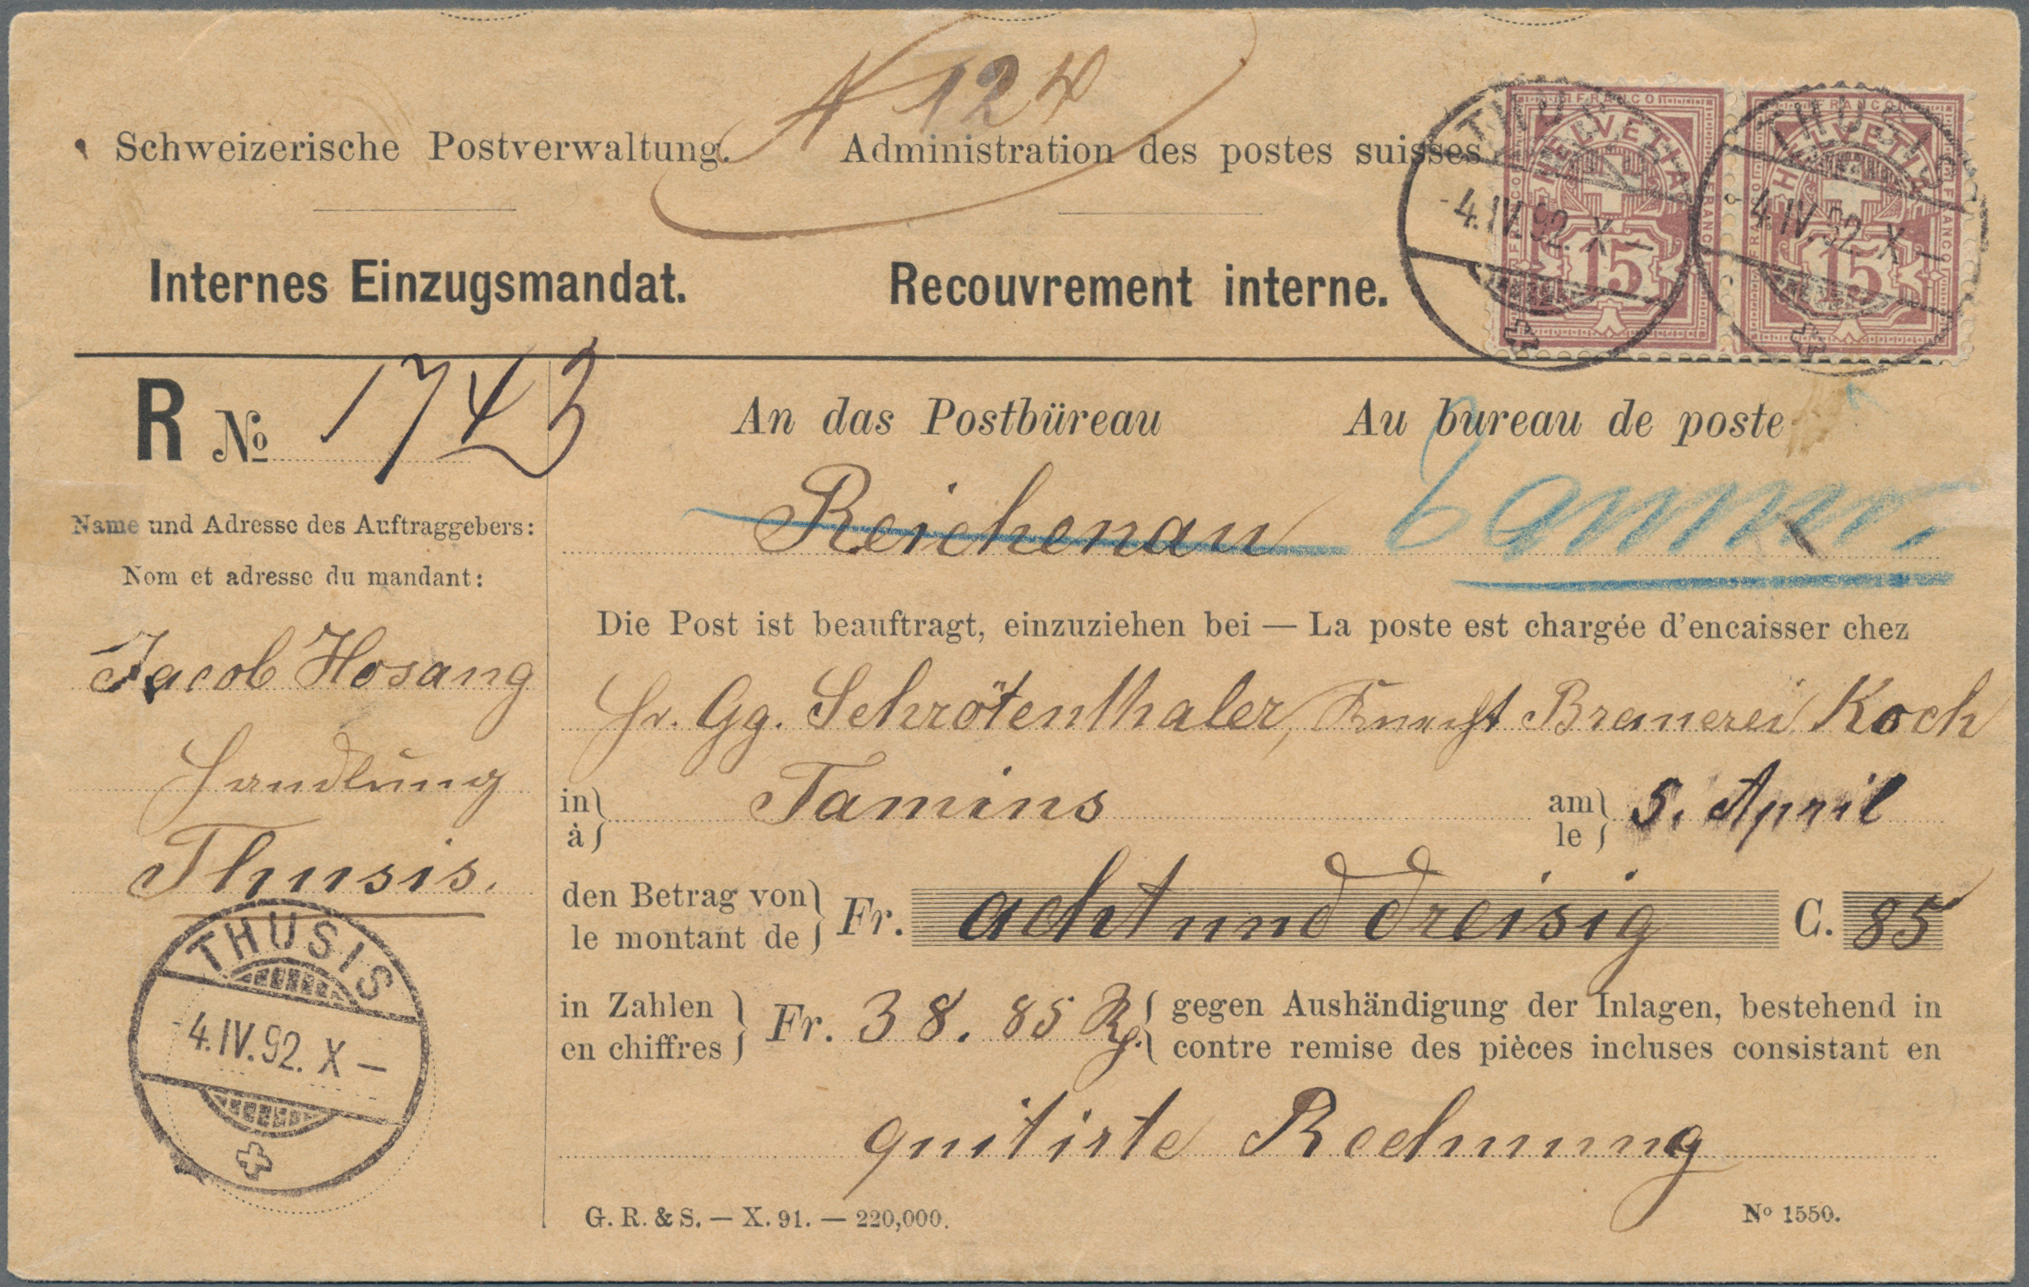 N 124
Schweizerische Postverwaltung. Administration des postes suisses
Internes Einzugsmandat. Recouvrement interne.
FRANCO HELVETIA FRANCO FRANCO 15
FRANCO HELVETIA FRANCO FRANCO 15
THUSIS -4.IV.92.X-
THUSIS -4.IV.92.X-
R No 1743
An das Postbüreau Au bureau de poste
Reichenau
Name und Adresse des Auftraggebers:
Nom et adresse du mandant:
Jacob Hosang
Handlung
Thusis.
THUSIS
-4.IV.92.X-
Die Post ist beauftragt, einzuziehen bei — La poste est chargée d'encaisser chez
Hr. Gg. Schrötenthaler, Knecht Brauerei Koch
in à Tamins am le 5. April
den Betrag von le montant de Fr. acht und dreisig C. 85
in Zahlen en chiffres Fr. 38. 85 Rp. gegen Aushändigung der Inlagen, bestehend in
contre remise des pièces incluses consistant en
quitirte Rechnung
G. R. & S. — X. 91. — 220,000. No 1550.